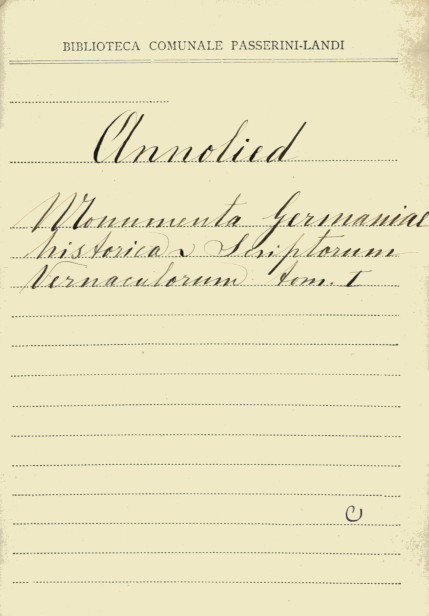 BIBLIOTECA COMUNALE PASSERINI-LANDI
Annolied
Monumenta Germaniae
historica Scriptorum
Vernaculorum tom. I
C